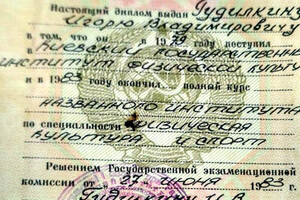 Настоящий диплом выдан Гудилкину
Игорю Владимировичу
в том, что он в 1979 году поступил
в Киевский государственный
институт физической культу
и в 1983 году окончил полный курс
названного института
по специальности физическая
культура и спорт
Решением Государственной экзаменационной
комиссии от "27" июня 1983 г.
Гудилкину И.В.